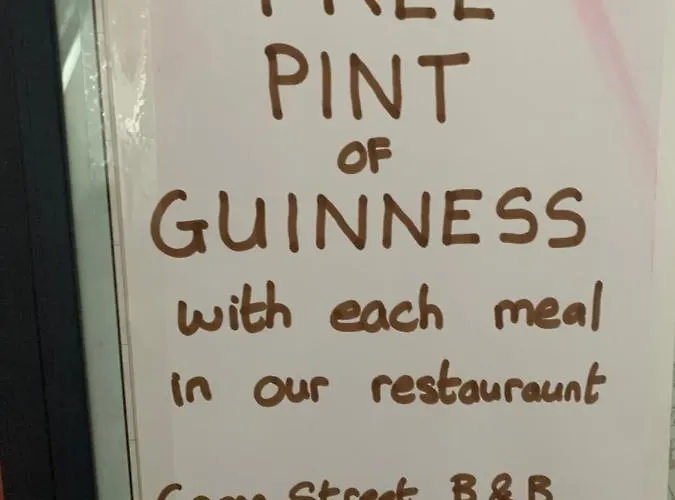 FREE
PINT
OF
GUINNESS
with each meal
in our restauraunt
Street B & B